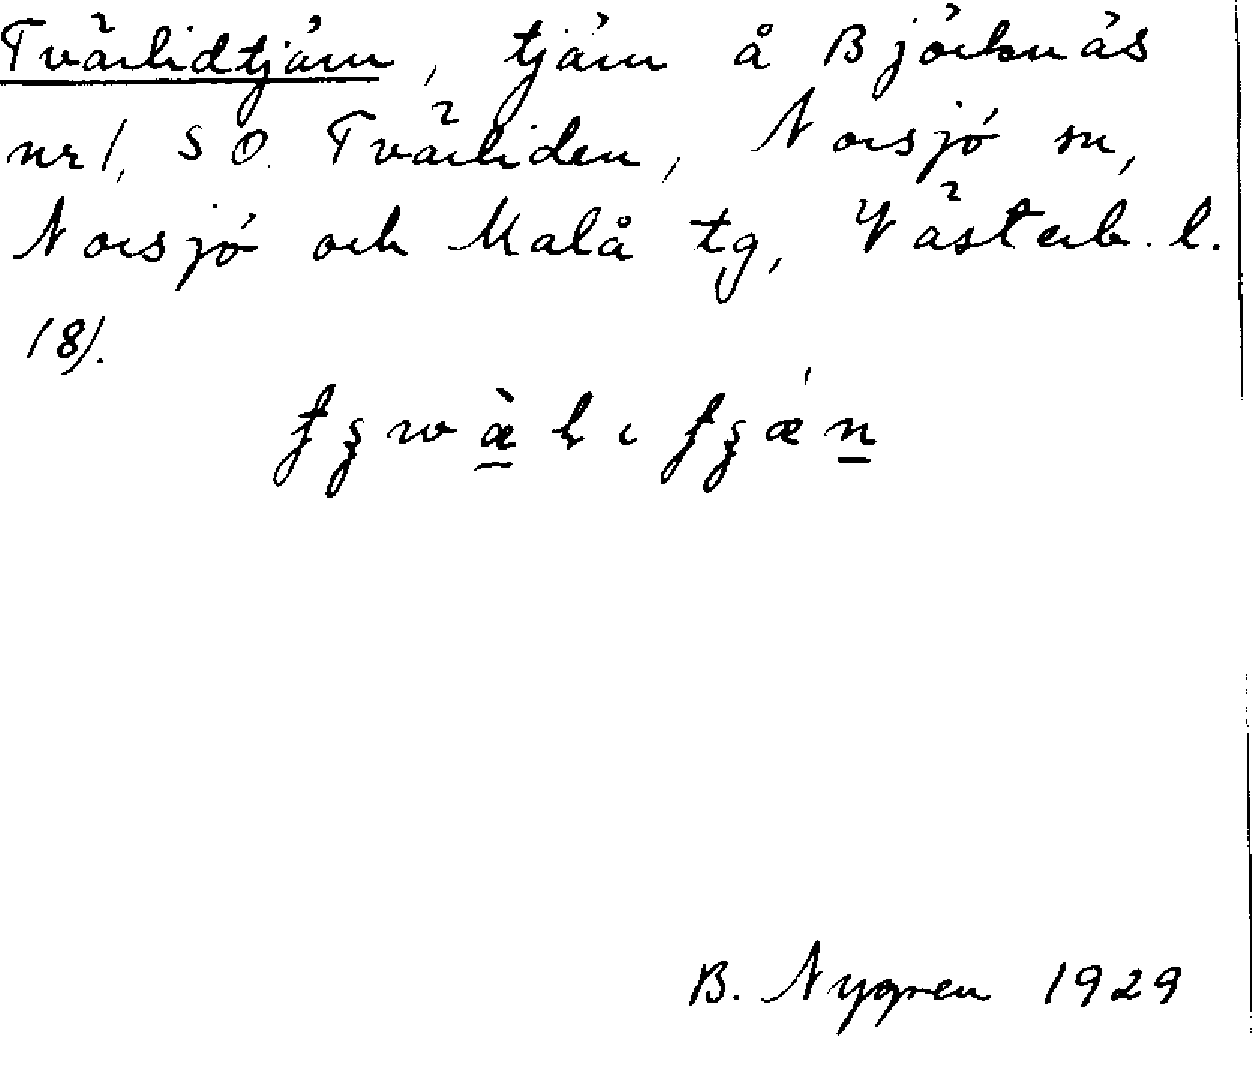 Tvärlidtjärn, tjärn å Björknäs
nr 1, SO. Tvärliden, Norsjö sn,
Norsjö och Malå tg, Västerb. l.
(8).
B. Nygren 1929